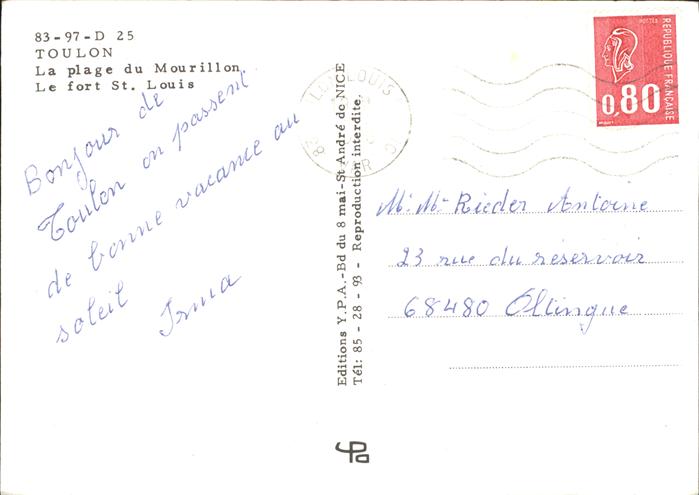 83-97-D 25
TOULON
La plage du Mourillon
Le fort St. Louis
Bonjour de
Toulon on passent
de bonne vacance au
soleil Irma
Editions Y.P.A.-Bd du 8 mai-St André de NICE
Tél: 85 - 28 - 93 - Reproduction interdite.
83 VAR
POSTES
REPUBLIQUE FRANÇAISE
0,80
Mr Me Rieder Antoine
23 rue du réservoir
68480 Oltingue
YPA